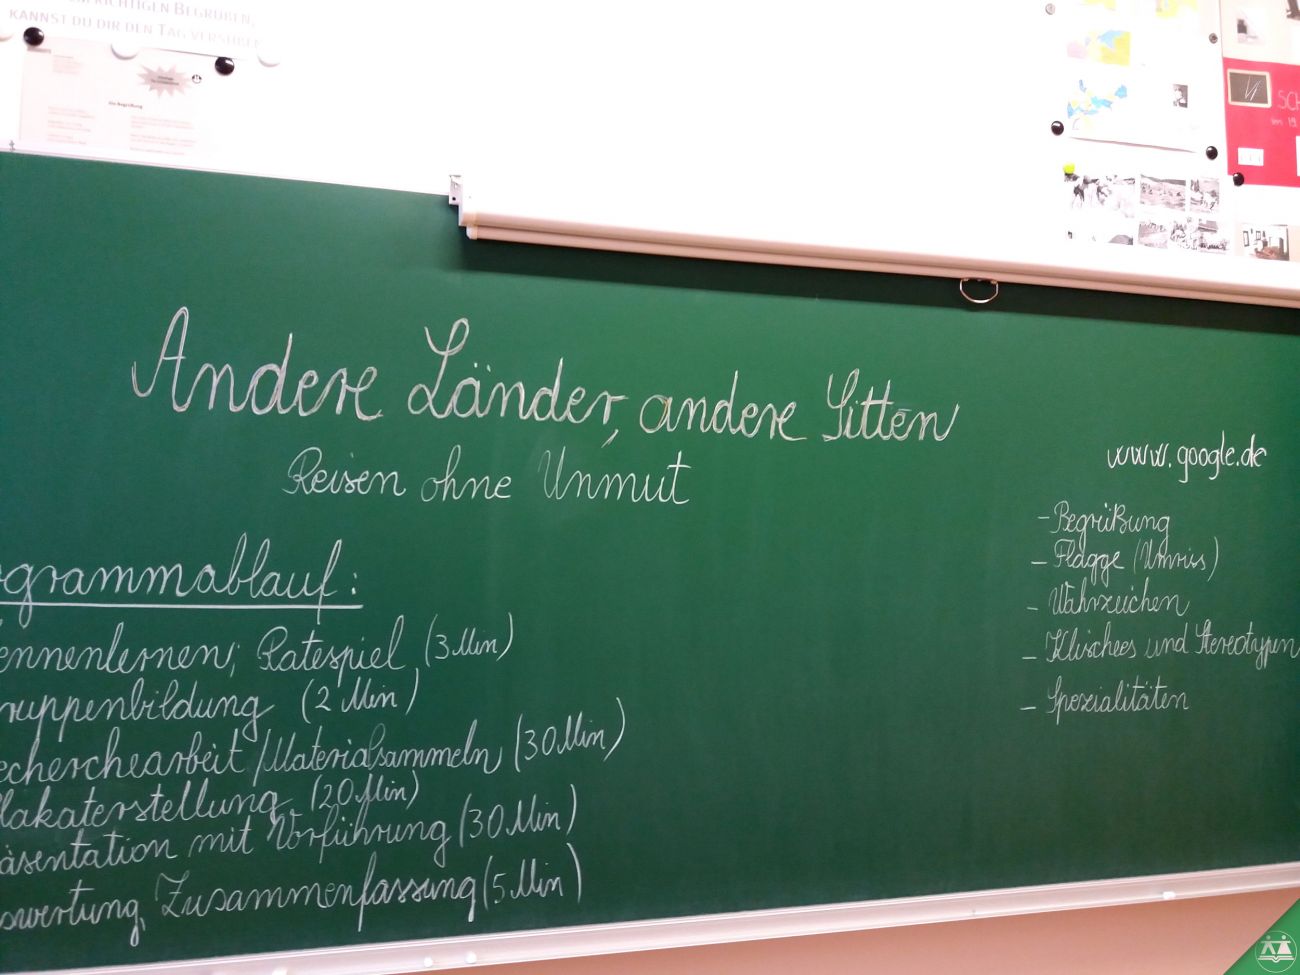 RICHTIGEN BEGRÜßEN,
KANNST DU DIR DEN TAG VERSÜßEN
Die Begrüßung
Andere Länder, andere Sitten
Reisen ohne Unmut
ogrammablauf:
ennenlernen; Ratespiel (3 Min)
ruppenbildung (2 Min)
echerchearbeit /Materialsammeln (30 Min)
lakaterstellung (20 Min)
äsentation mit Vorführung (30 Min)
swertung, Zusammenfassung (5 Min)
www.google.de
- Begrüßung
- Flagge (Umriss)
- Wahrzeichen
- Klischees und Stereotypen
- Spezialitäten